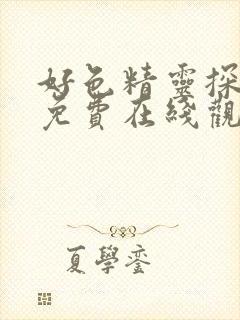 好色精靈探
免費在綫觀
夏學鑾